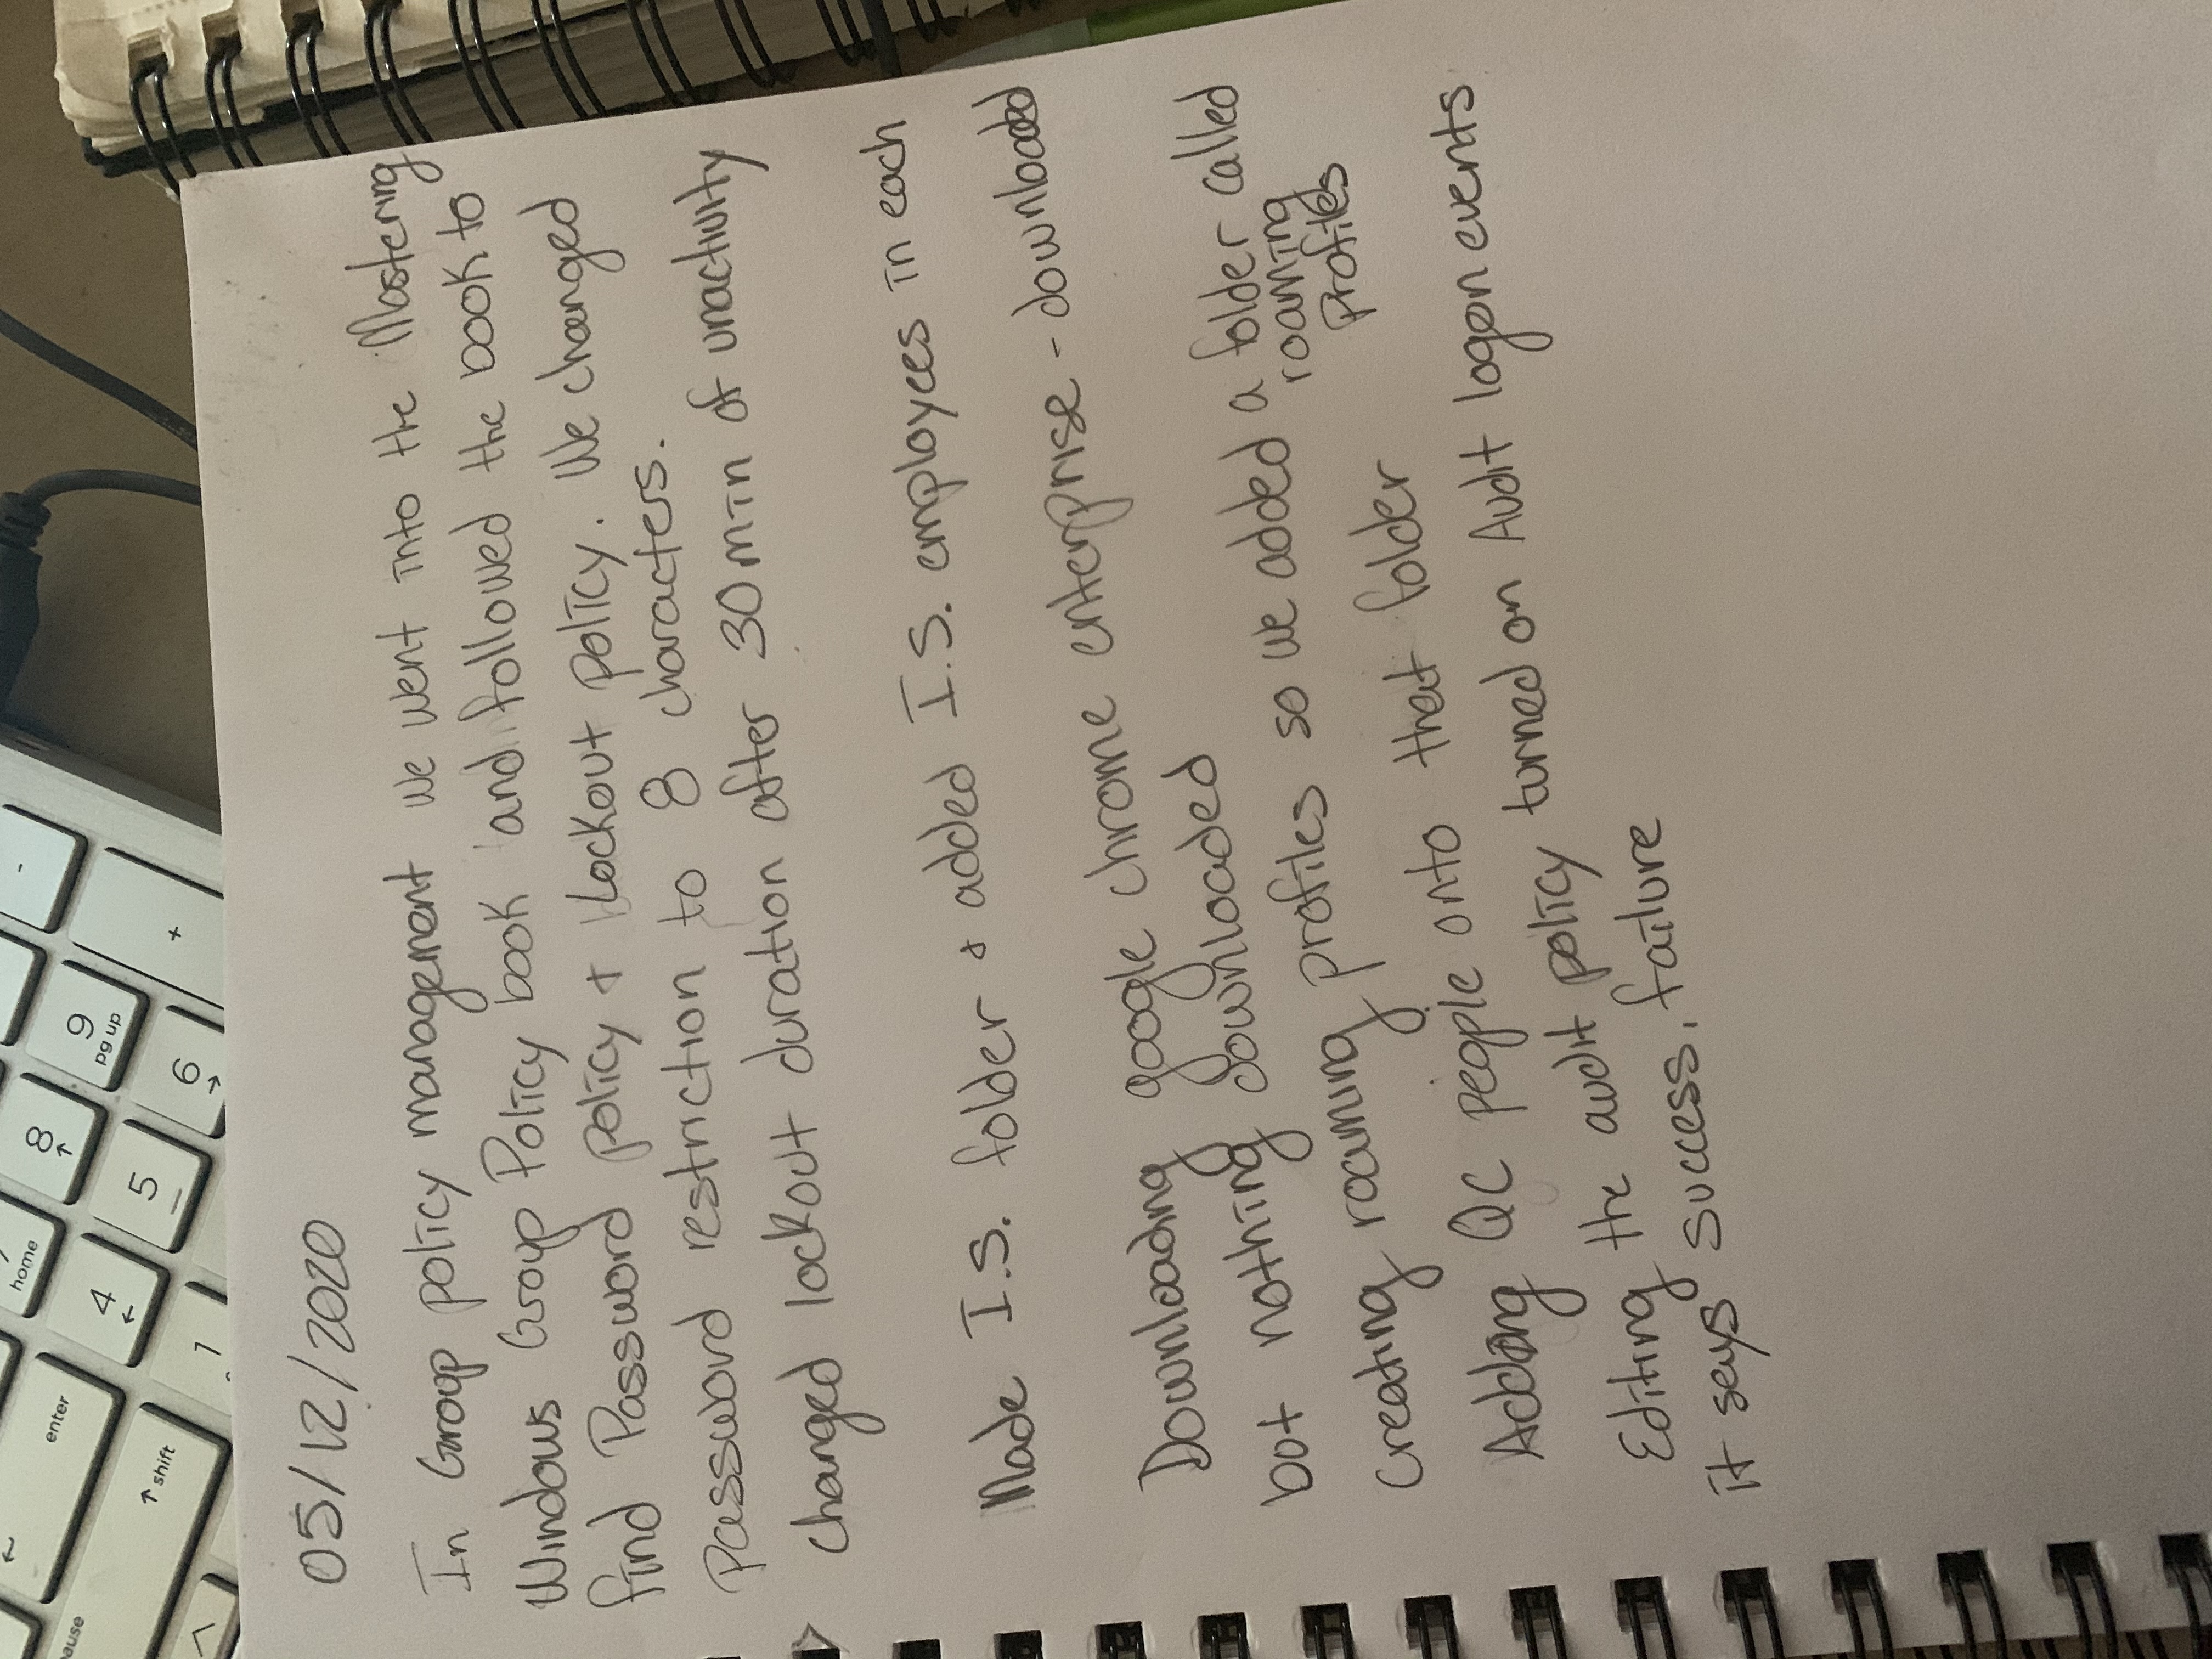 pause
enter
↑ shift
7
home
8
↑
9
pg up
-
4
←
5
6
→
+
1
05/12/2020
In Group policy management we went into the Mastering
Windows Group Policy book and followed the book to
find Password policy + Lockout policy. We changed
Password restriction to 8 characters.
changed lockout duration after 30 min of unactivity
Made I.S. folder + added I.S. employees in each
Downloading google chrome enterprise - downloaded
but nothing downloaded
Creating roaming profiles so we added a folder called
roaming
Profiles
Adding QC people onto that folder
Editing the audit policy turned on Audit logon events
it says success, failure